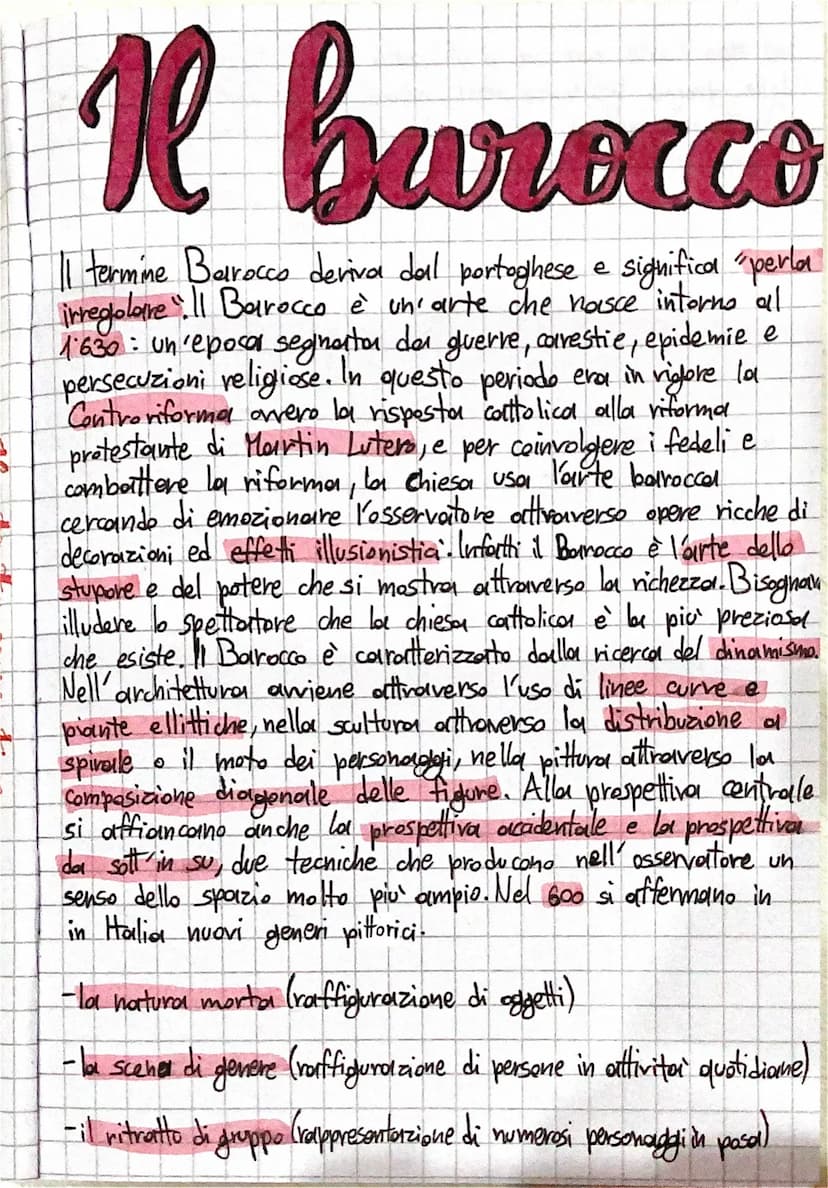 Il barocco
Il termine Barocco deriva dal portoghese e significa "perla
irregolare". Il Barocco è un'arte che nasce intorno al
1'630: un'eposa segnata da guerre, carestie, epidemie e
persecuzioni religiose. In questo periodo era in vigore la
Controriforma ovvero la risposta cattolica alla riforma
protestante di Martin Lutero, e per coinvolgere i fedeli e
combattere la riforma, la chiesa usa l'arte barocca
cercando di emozionare l'osservatore attraverso opere ricche di
decorazioni ed effetti illusionistici. Infatti il Barocco è l'arte dello
stupore e del potere che si mostra attraverso la richezza. Bisognava
illudere lo spettattore che la chiesa cattolica è la più preziosa
che esiste. Il Barocco è caratterizzato dalla ricerca del dinamismo.
Nell'architettura avviene attraverso l'uso di linee curve e
piante ellittiche, nella scultura attraverso la distribuzione a
spirale o il moto dei personaggi, nella pittura attraverso la
composizione diagonale delle figure. Alla prespettiva centrale
si affiancano anche la prospettiva accidentale e la prospettiva
da sott'in su, due tecniche che producono nell'osservatore un
senso dello spazio molto più ampio. Nel 600 si affermano in
in Italia nuovi generi pittorici.
-la natura morta (raffigurazione di oggetti)
-la scena di genere (raffigurazione di persone in attività quotidiane)
-il ritratto di gruppo (rappresentazione di numerosi personaggi in posa)